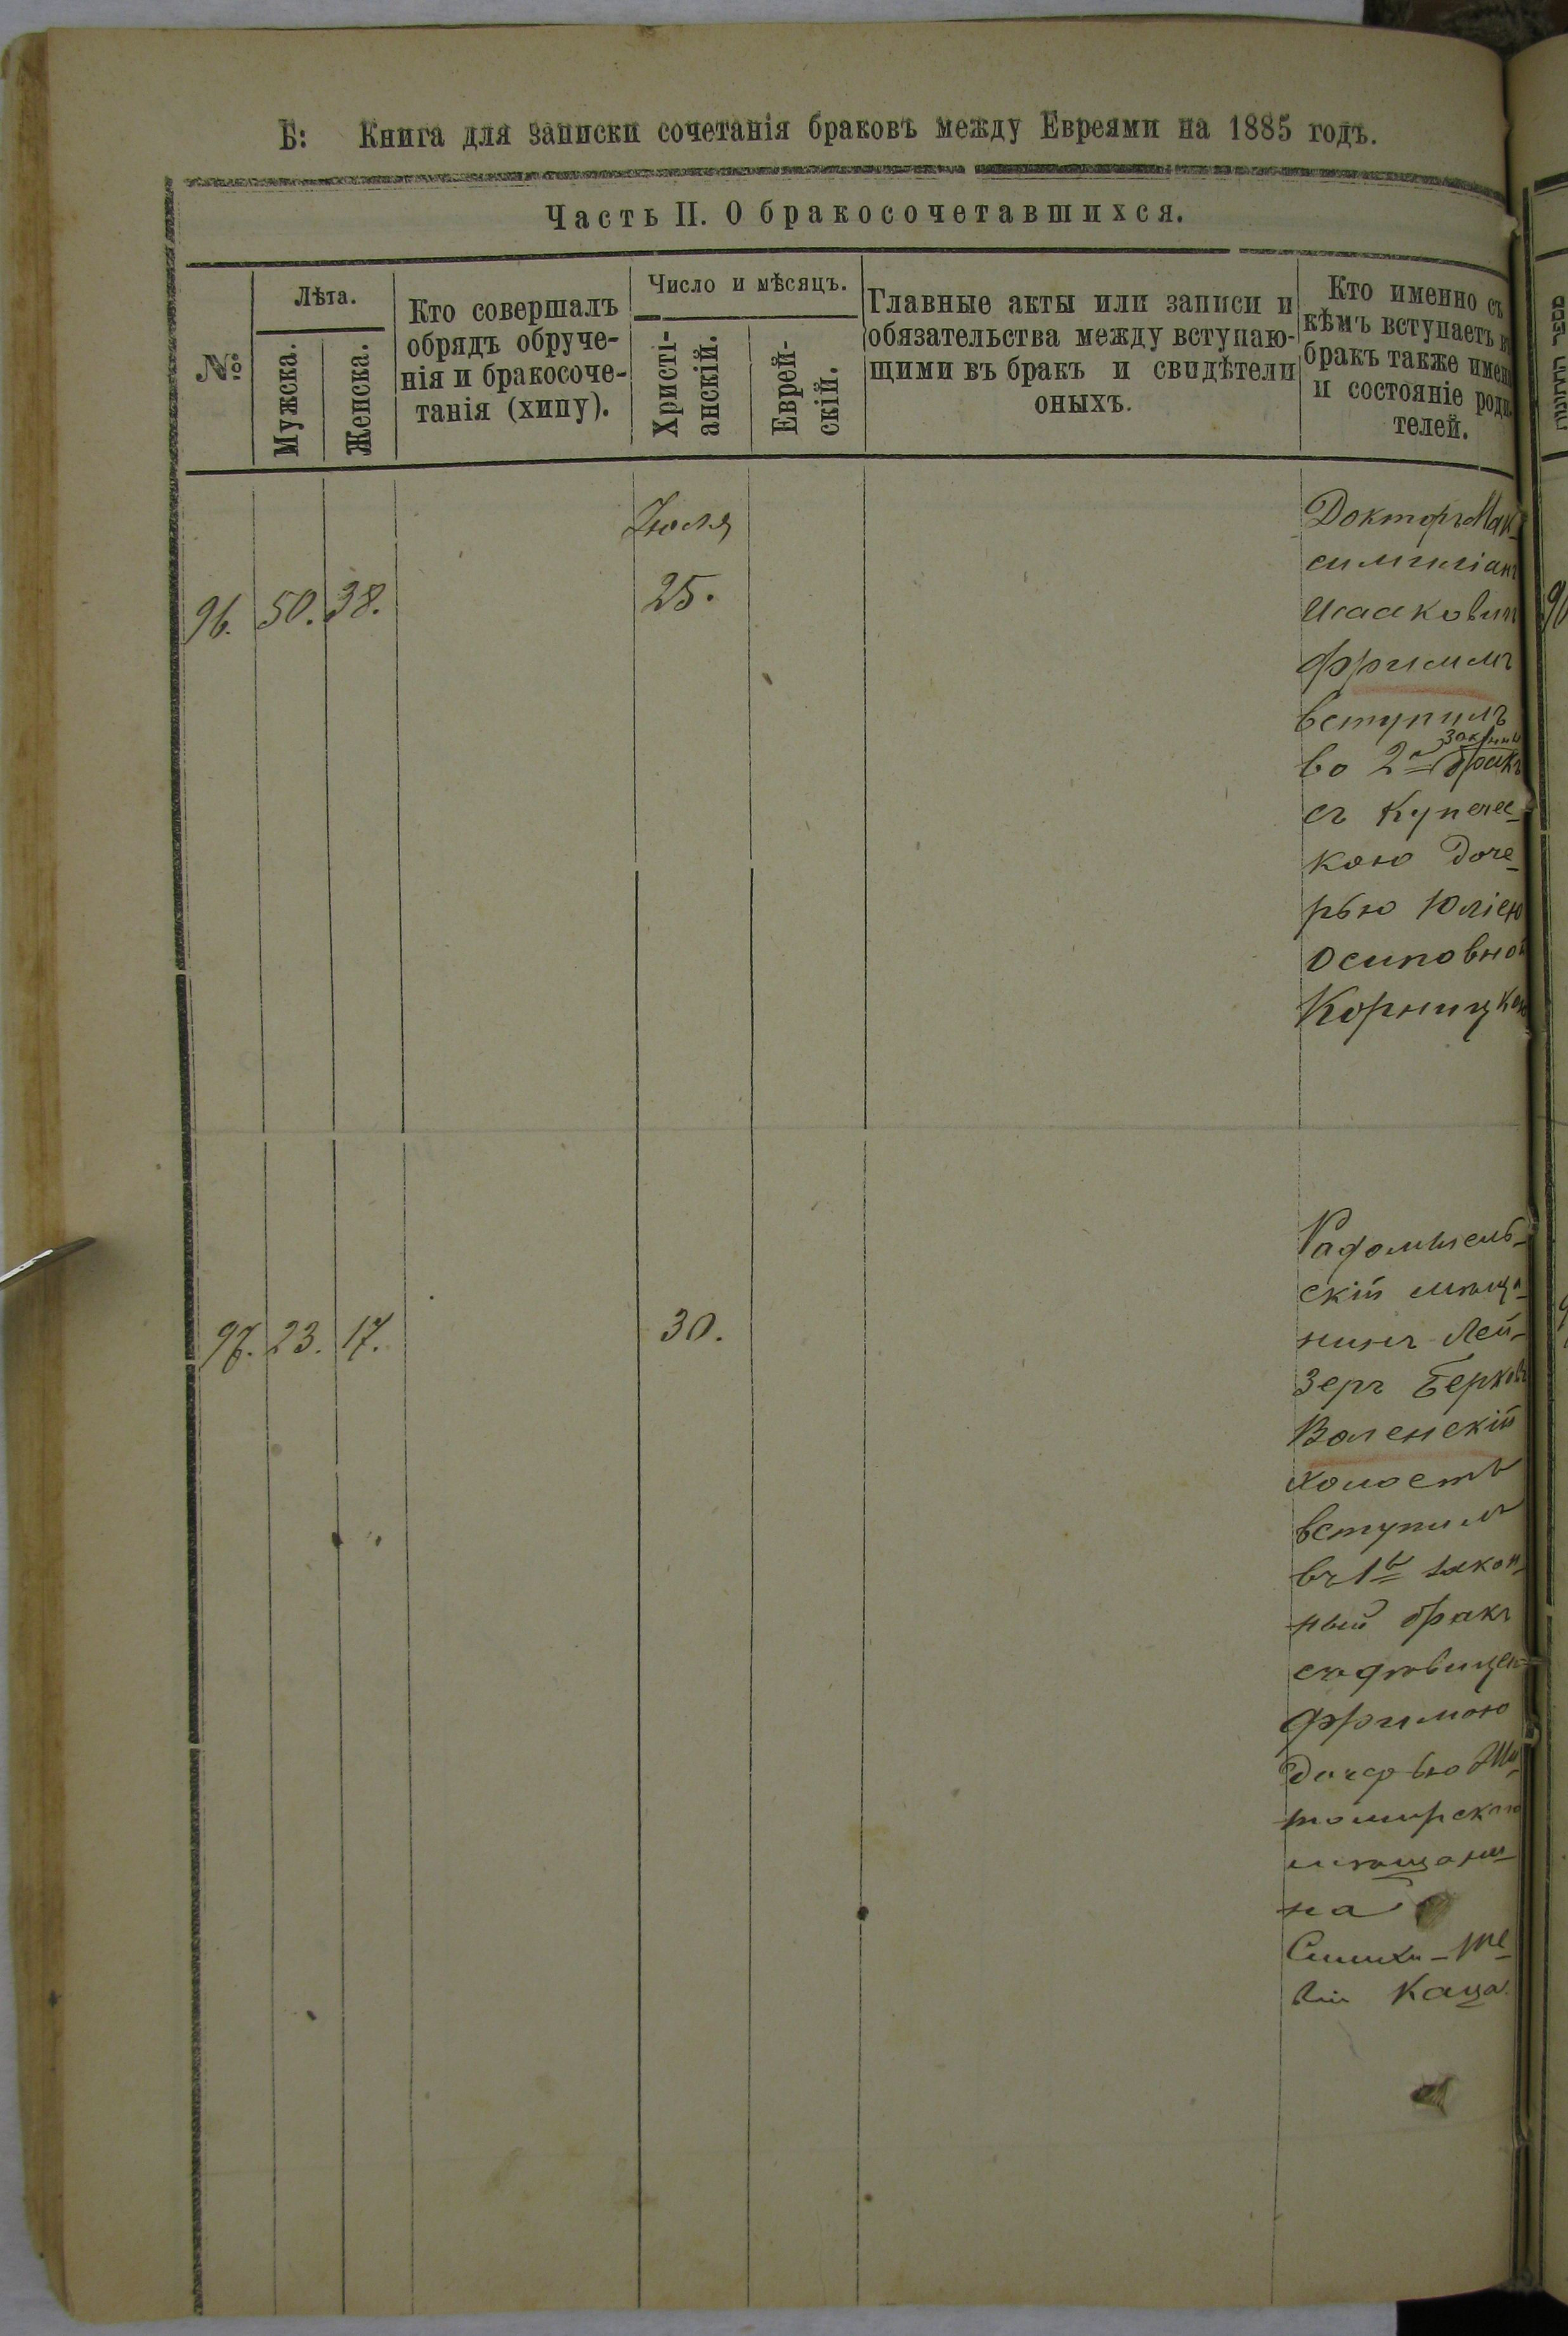 Б: Книга для записки сочетанія браковъ между Евреями на 1885 годъ.
Часть II. О бракосочетавшихся.
№
Лѣта.
Мужска.
Женска.
Кто совершалъ
обрядъ обруче-
нія и бракосоче-
танія (хипу).
Число и мѣсяцъ.
Христі-
анскій.
Еврей-
скій.
Главные акты или записи и
обязательства между вступаю-
щими въ бракъ и свидѣтели
оныхъ.
Кто именно съ
кѣмъ вступаетъ въ
бракъ также имена
и состояніе роди-
телей.
Іюля
96. 50. 38. 25.
Докторъ Мак-
симиліанъ
Исааковичъ
Фриммъ
вступилъ
законный
во 2й бракъ
съ Купечес-
кою доче-
рью Юліею
Осиповной
Корницкою
97. 23. 17. 30.
Радомысль-
скій мѣща-
нинъ Лей-
зеръ Берковъ
Воленскій
холостъ
вступилъ
въ 1й закон-
ный бракъ
съ дѣвицею
Фримою
дочерью Жи-
томирскаго
мѣщани-
на
Симхи-Те-
вы Каца.